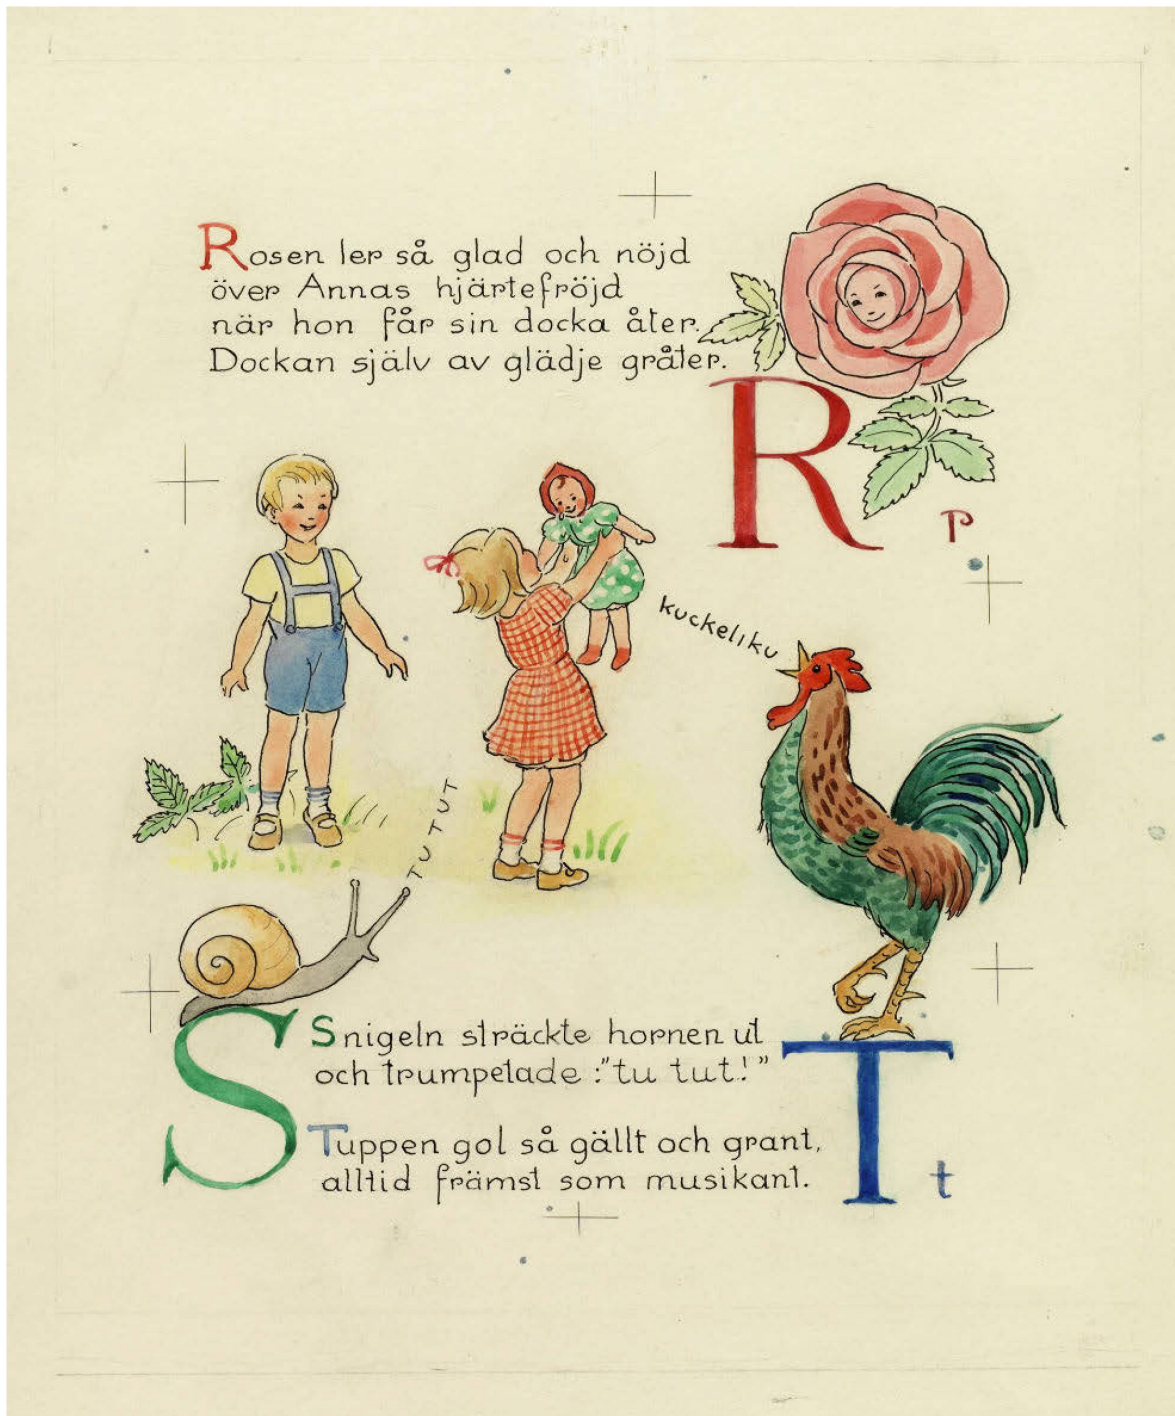 Rosen ler så glad och nöjd
över Annas hjärtefröjd
när hon får sin docka åter.
Dockan själv av glädje gråter.
R r
kuckeliku
TU TUT
S
Snigeln sträckte hornen ut
och trumpetade :"tu tut!"
Tuppen gol så gällt och grant,
alltid främst som musikant.
T t